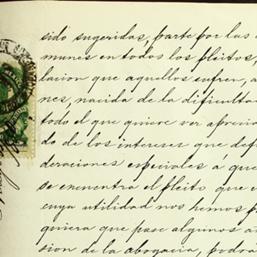 sido sugeridas, parte por las
munes en todos los pleitos,
lacion que aquellos sufren, a
nes, nacida de la dificulta
todo el que quiere ver aprecia
do de los intereses que def
deraciones especiales á que
se encuentra el pleito que e
cuya utilidad nos hemos p
quiera que pase algunos a
sion de la abogacia, podrá